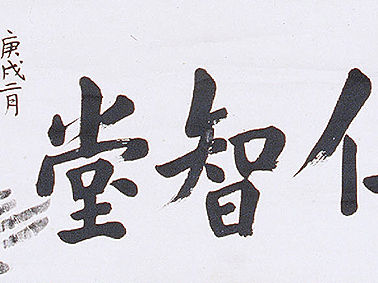 仁智堂
庚戌二月